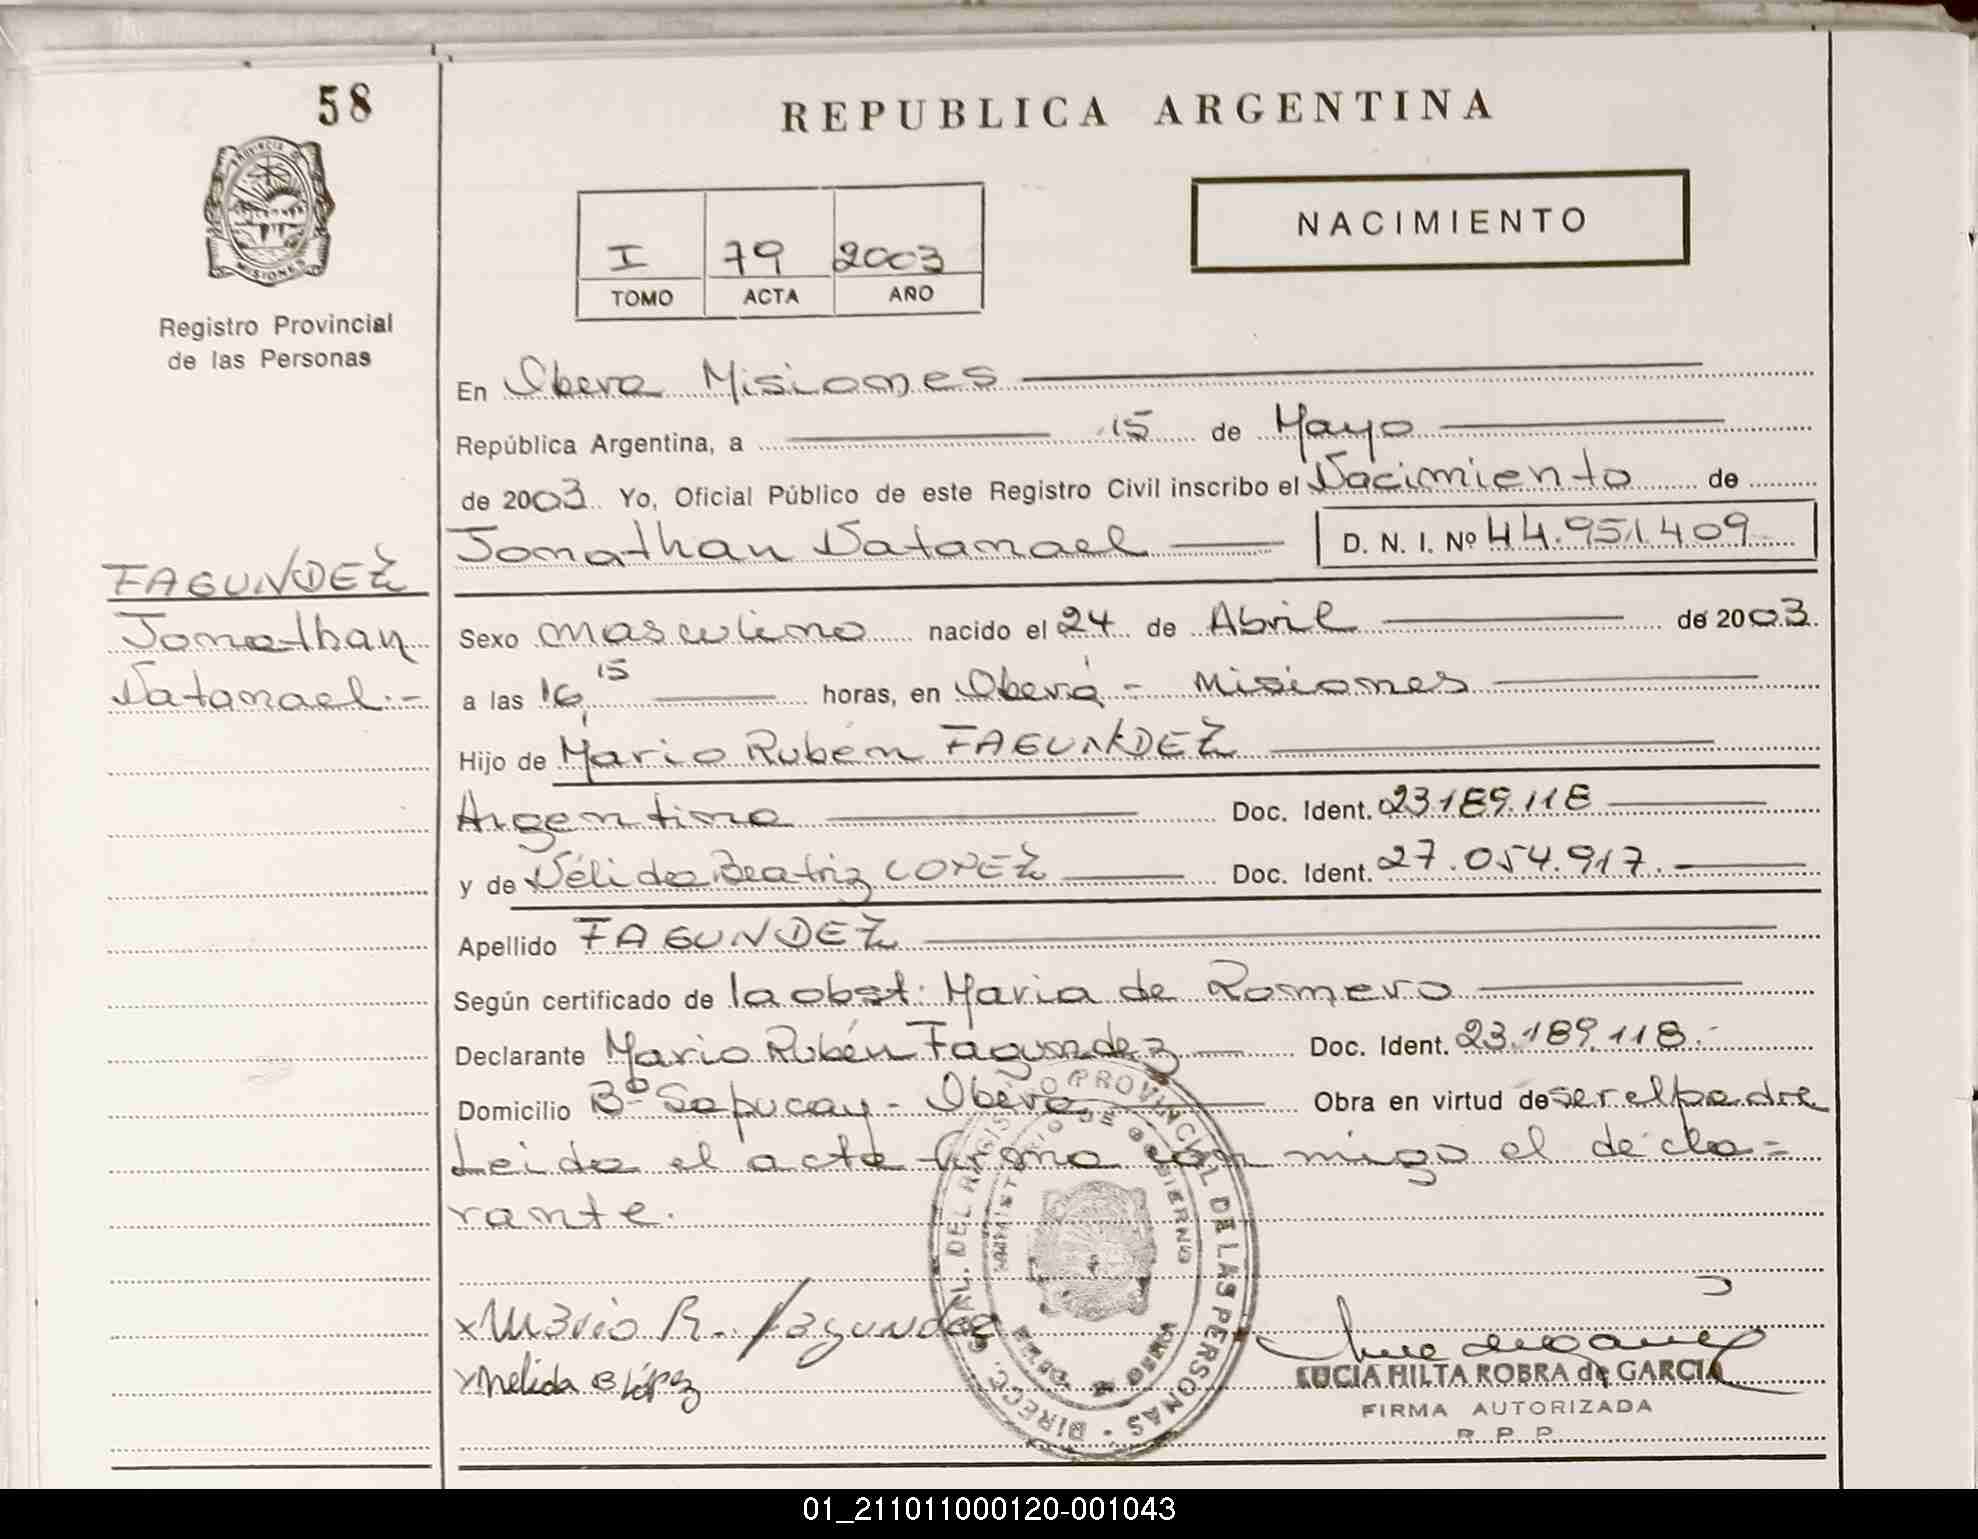 58
REPUBLICA ARGENTINA
PROVINCIA DE
MISIONES
Registro Provincial
de las Personas
NACIMIENTO
I 79 2003
TOMO ACTA AÑO
En Obera Misiones
República Argentina, a 15 de Mayo
de 2003. Yo, Oficial Público de este Registro Civil inscribo el Nacimiento de
Jonathan Natanael D. N. I. Nº 44.951.409
FAGUNDEZ
Jonathan
Natanael.-
Sexo masculino nacido el 24 de Abril de 2003.
a las 16,15 horas, en Oberá - Misiones
Hijo de Mario Rubén FAGUNDEZ
Argentino Doc. Ident. 23.189.118
y de Nélida Beatriz LOPEZ Doc. Ident. 27.054.917.
Apellido FAGUNDEZ
Según certificado de la obst. Maria de Romero
Declarante Mario Rubén Fagundez Doc. Ident. 23.189.118.-
Domicilio Bº Sapucay - Oberá Obra en virtud de ser el padre
Leida el acta firma con migo el decla=
rante.
DIRECC. GRAL. DEL REGISTRO PROVINCIAL DE LAS PERSONAS
MINISTERIO DE GOBIERNO
x Mario R. Fagundez
x Nelida B López
LUCIA HILTA ROBRA de GARCIA
FIRMA AUTORIZADA
R. P. P.
01_211011000120-001043